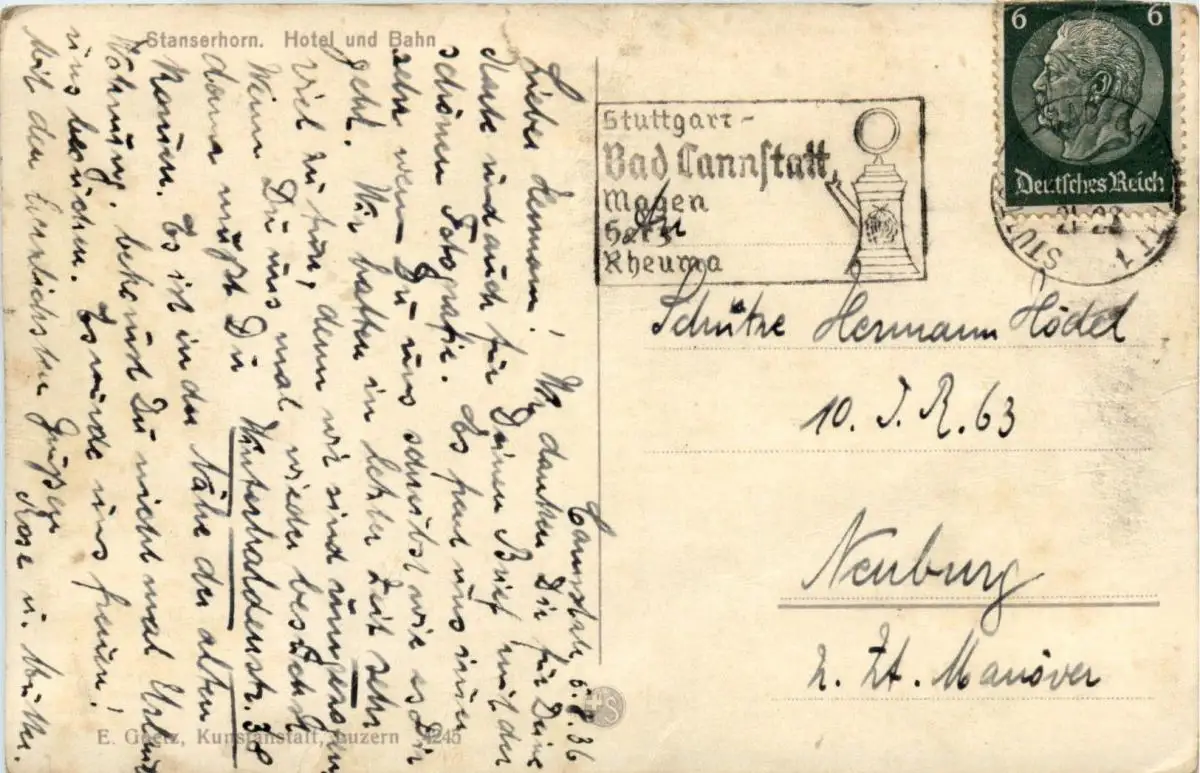 Stanserhorn. Hotel und Bahn
Cannstatt, 5.8.36
Lieber Hermann! Wir danken Dir für Deine
Karte und auch für Deinen Brief mit der
schönen Fotografie. Es freut uns immer
sehr wenn Du uns schreibst wie es Dir
geht. Wir hatten in letzter Zeit sehr
viel zu tun, denn wir sind umgezogen
Wenn Du uns mal wieder besuchst
dann mußt Du Winterhaldenstr. 38
kommen. Es ist in der Nähe der alten
Wohnung. bekommst Du nicht mal Urlaub
uns besuchen. Es würde uns freuen!
Mit den herzlichsten Grüßen
Rose u. Mutter.
E. Goetz, Kunstanstalt, Luzern 4245
Stuttgart-
Bad Cannstatt,
Magen
Herz
Rheuma
6 6
Deutsches Reich
21-22
An
Schütze Hermann Hödel
10. J. R. 63
Neuburg
z. Zt. Manöver